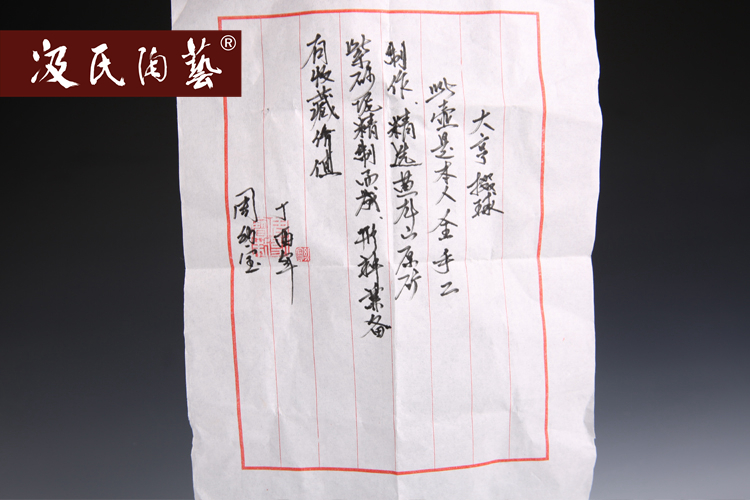 汲氏陶藝®
大亨掇球
此壶是本人全手工
制作、精选黄龙山原矿
紫砂泥精制而成、形神兼备
有收藏价值
丁酉年
周